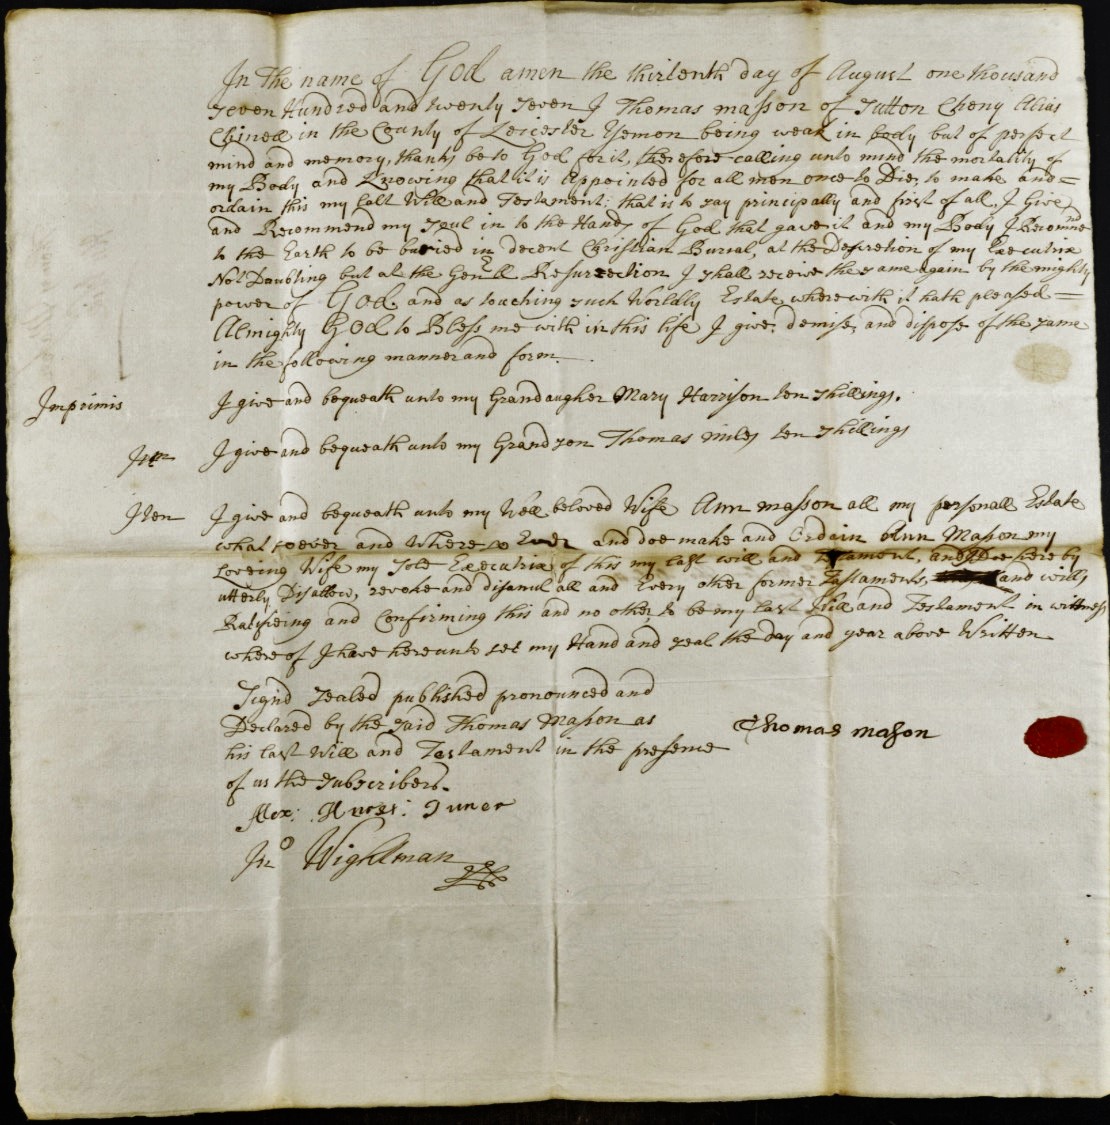 In The name of God amen the thirtenth day of August one thousand
seven Hundred and twenty seven I Thomas masson of Sutton Cheny Alias
in the County of Leicester Yemon being weak in body but of perfect
mind and memory, thanks be to God for it, therefore calling unto mind the mortality of
my Body and Knowing that it is Appointed for all men once to Die, to make and =
ordain this my last Will and Testament; that is to say principally and first of all, I Give
and Recommend my soul in to the Hands of God that gave it and my Body I Recommend
to the Earth to be buried in decent Christian Burial, at the Descretion of my Executrix
Not Doubting but at the Genll Resurrection I shall receive the same again by the mighty
power of God. and as touching such Worldly Estate, where with it hath pleased =
Almighty God to Bless me with in this life I give, demise, and dispose of the same
in the following manner and form
Imprimis I give and bequeath unto my Grandaugher Mary Harrison ten shillings.
Itm I give and bequeath unto my Grandson Thomas miles ten shillings
Iten I give and bequeath unto my Well beloved Wife Ann masson all my personall Estate
what soever and Where so Ever and doe make and Ordain Ann Mason my
Loveing Wife my Sole Executrix of this my last will and Testament, and Doe here by
utterly Disallow, revoke and disanul all and Every other former Testaments, and wills
Ratifieing and Confirming this and no other to be my last Will and Testament in wittness
where of I have here unto set my Hand and seal the day and year above Written
Signd sealed published pronounced and
Declared by the said Thomas Mason as
his last Will and Testament in the presence
of us the subscribers.
Thomas mason
Alex: Hurst: Juner
Jno Wightman